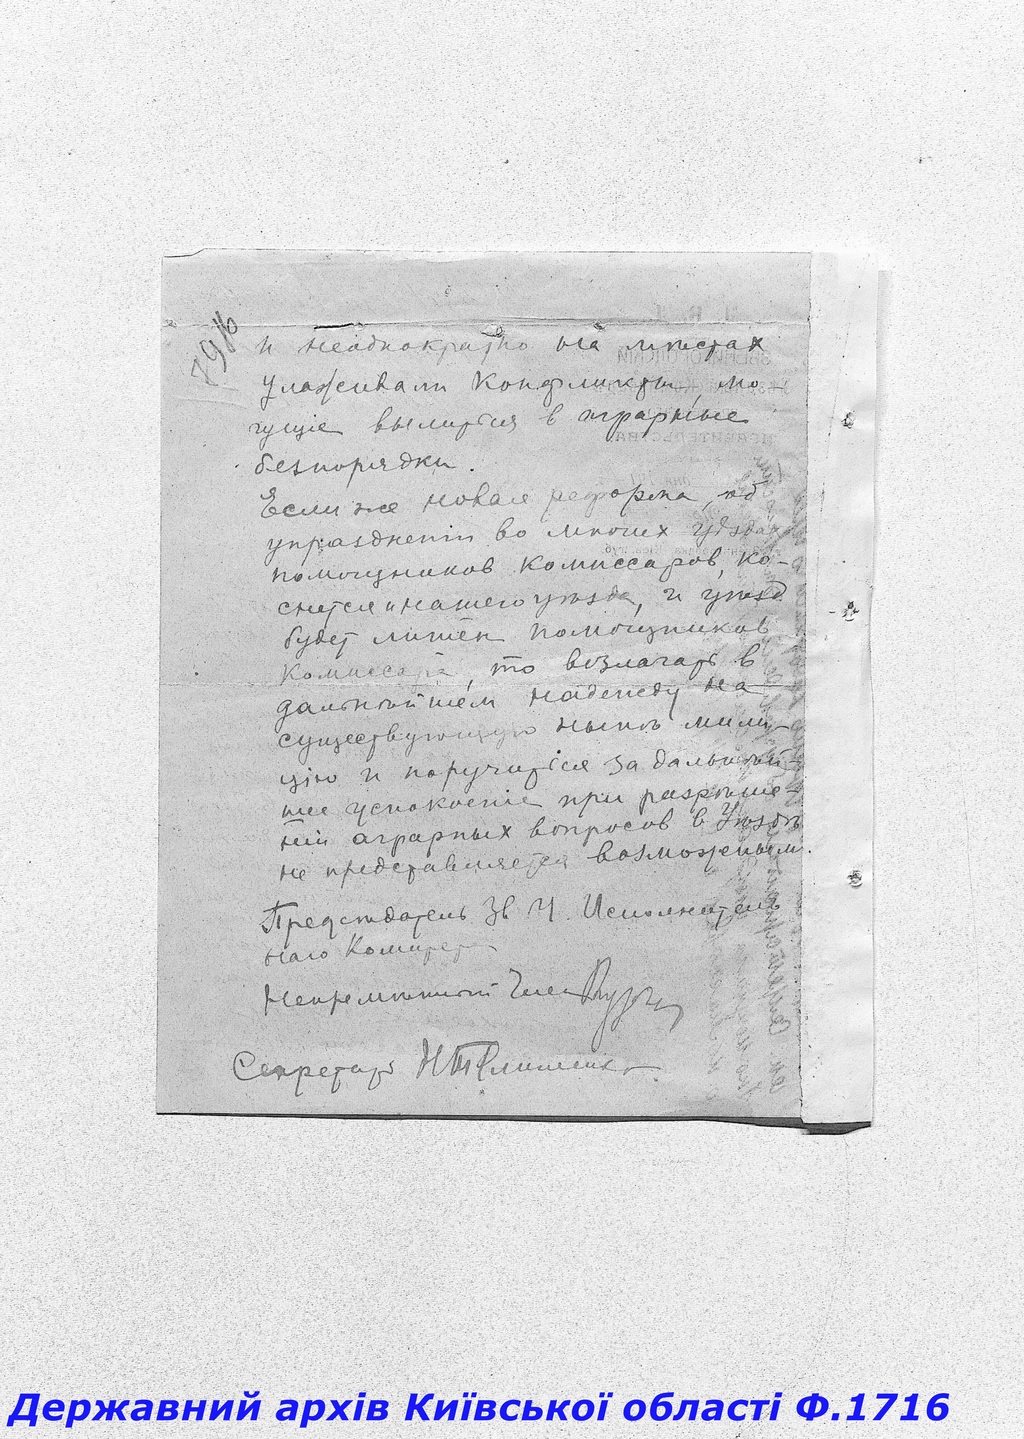 79 об
и неоднократно на мѣстах
улаживали конфликты мо-
гущіе вылится в аграрные
безпорядки.
Если же новая реформа, об
упраздненіи во многих уѣздах
помощников комиссаров, ко-
снется и нашего уѣзда, и уѣзд
будет лишен помощников
Комиссара, то возлагать в
дальнѣйшем надежду на
существующую нынѣ мили-
цію и поручится за дальнѣй-
шее успокоеніе при разрѣше-
ніи аграрных вопросов в Уѣздѣ
не представляется возможным.
Председатель Зв. У. Исполнитель
наго Комитета
Непремѣнный Член
Секретарь
Державний архів Київської області Ф.1716